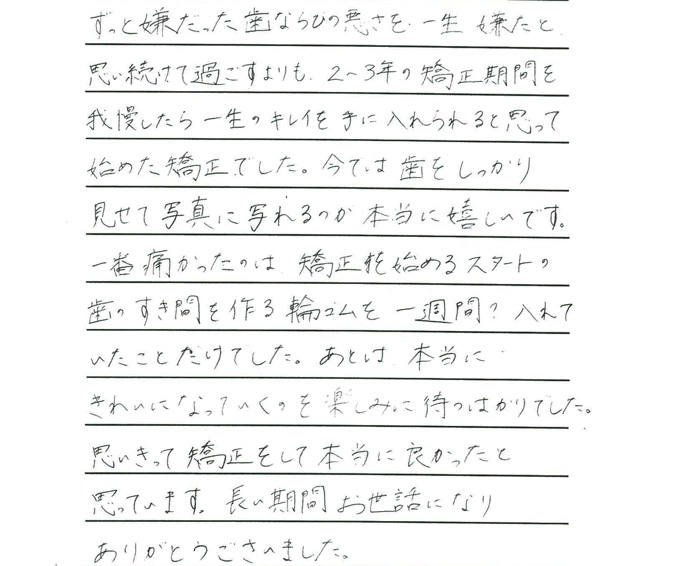 ずっと嫌だった歯ならびの悪さを、一生嫌だと
思い続けて過ごすよりも、2～3年の矯正期間を
我慢したら一生のキレイを手に入れられると思って
始めた矯正でした。今では歯をしっかり
見せて写真に写れるのが本当に嬉しいです。
一番痛かったのは、矯正を始めるスタートの
歯のすき間を作る輪ゴムを一週間？入れて
いたことだけでした。あとは、本当に
きれいになっていくのを楽しみに待つばかりでした。
思いきって矯正をして本当に良かったと
思っています。長い期間お世話になり
ありがとうございました。